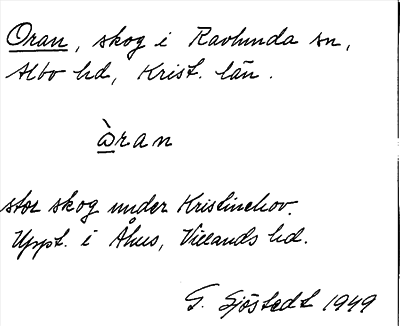 Oran, skog i Ravlunda sn,
Albo hd, Krist. län.
òran
stor skog under Kristinehov.
Uppt. i Åhus, Villands hd.
G. Sjöstedt 1949